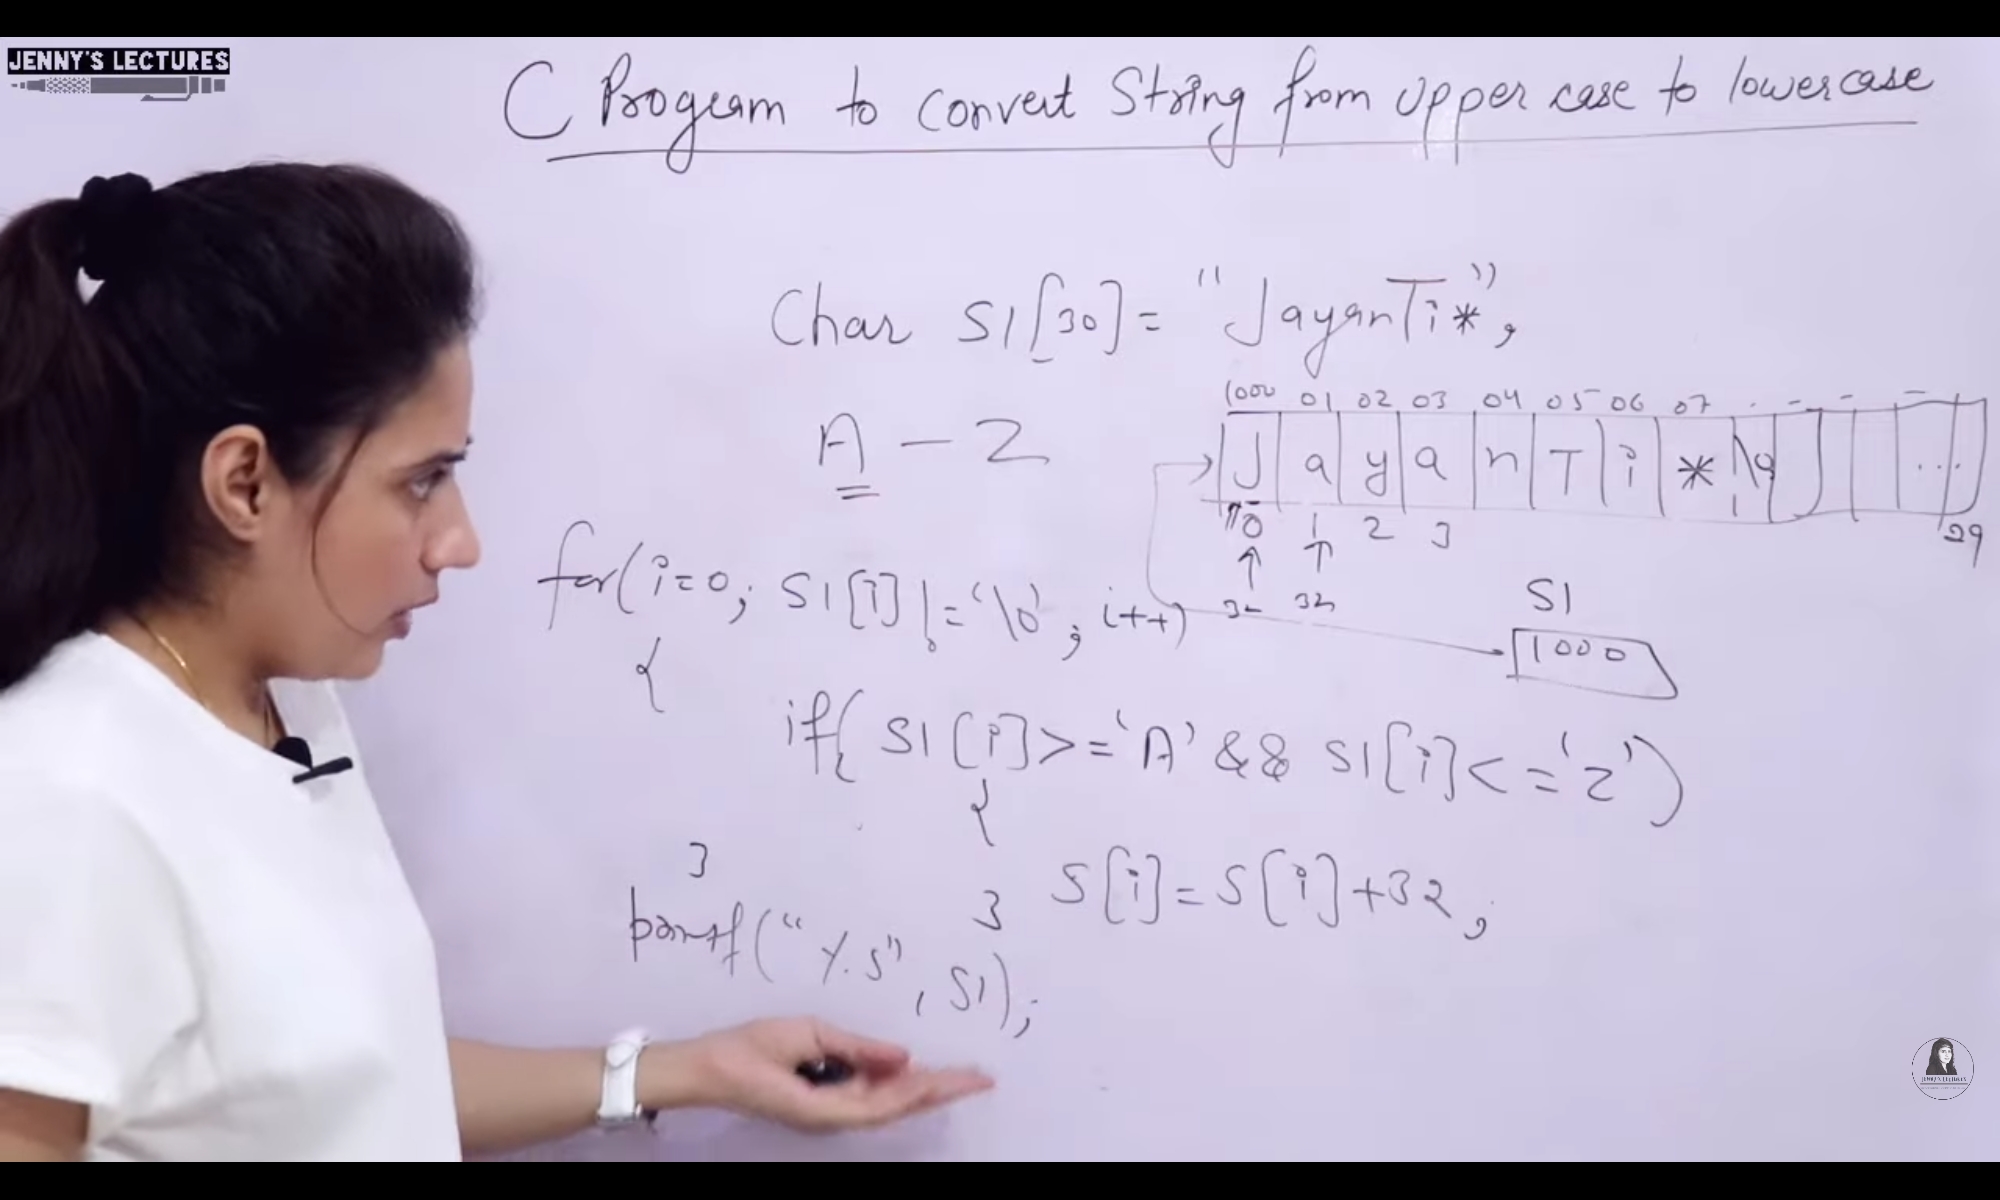 JENNY'S LECTURES
C Program to convert String from upper case to lowercase
Char S1[30] = "JayanTi*",
A - Z
1000 01 02 03 04 05 06 07 . - - -
J a y a n T i * \0 ...
0 1 2 3 29
32 32
S1
1000
for(i=0; S1[i]!='\0'; i++)
{
if( S1[i]>='A' && S1[i]<='Z')
{
S[i]=S[i]+32;
}
}
printf("%s", S1);
JENNY'S LECTURES